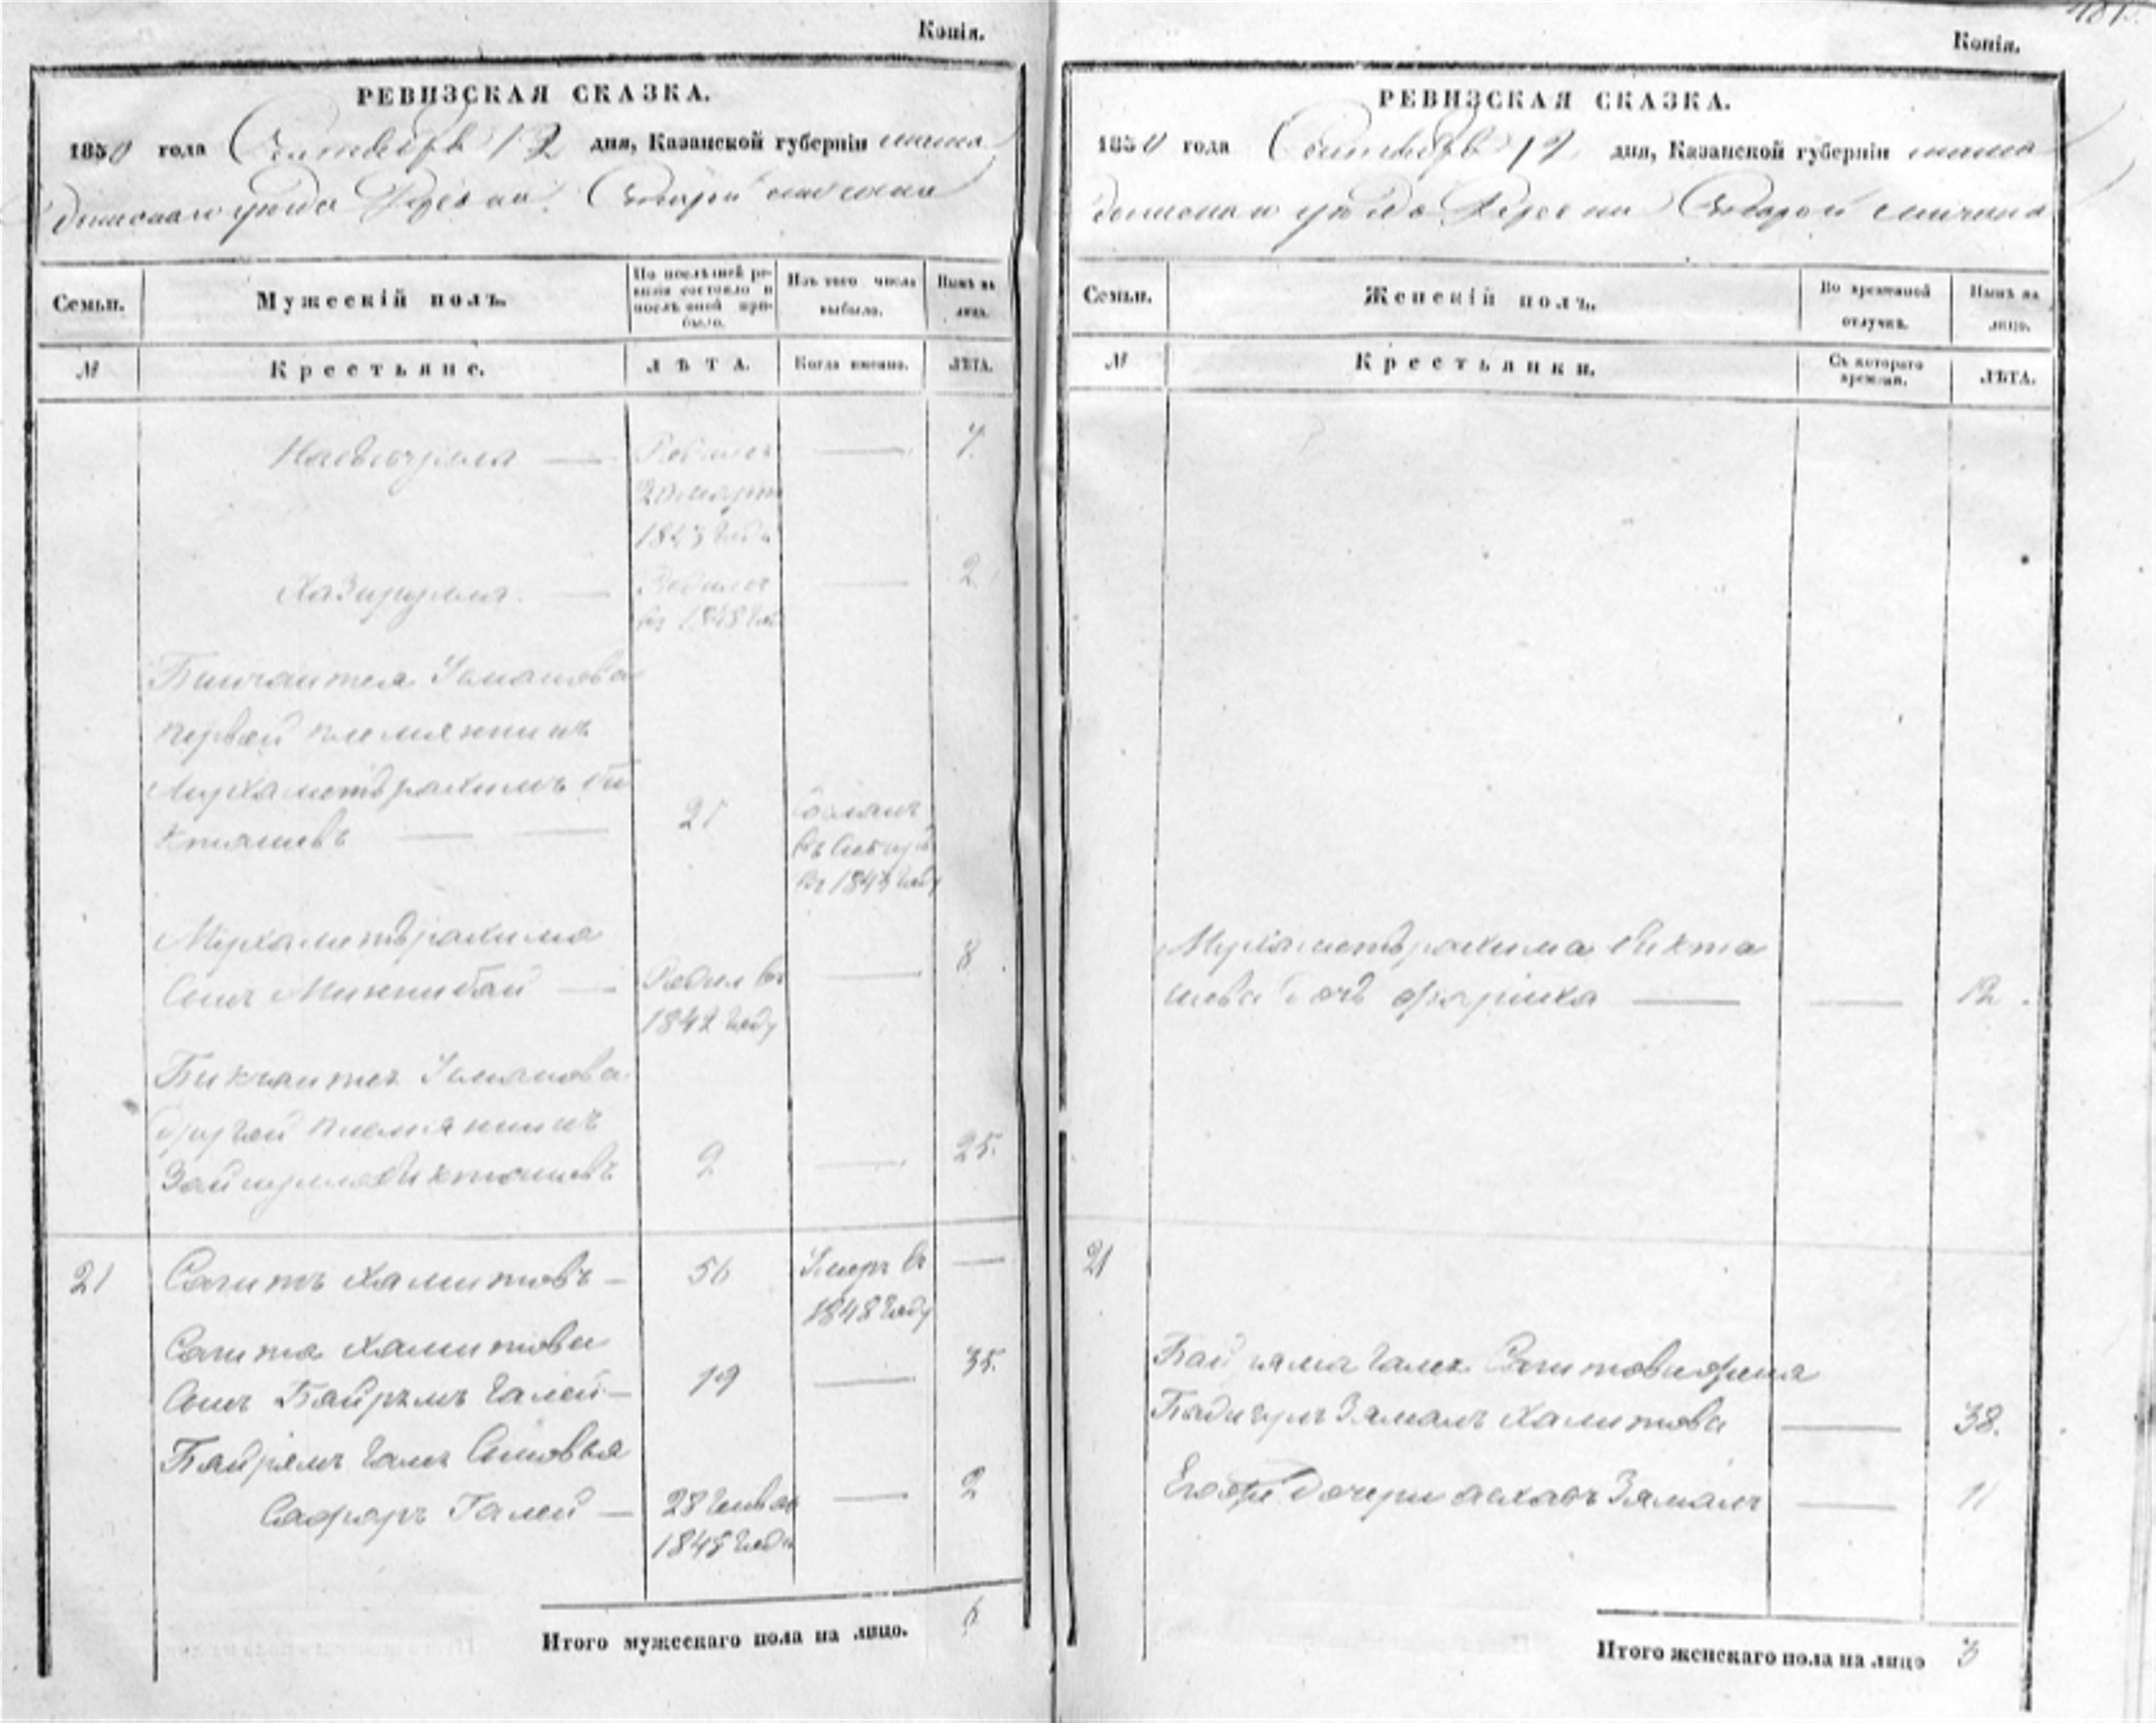 Копія.
РЕВИЗСКАЯ СКАЗКА.
1850 года Сентября 12 дня, Казанской губерніи мама
дышскаго уѣзда Деревни Старой
Семьи.
Мужескій полъ.
По послѣдней ре-
визіи состояло и
послѣ оной при-
было.
Изъ того числа
выбыло.
Нынѣ на
лицо.
№
Крестьяне.
ЛѢТА.
Когда именно.
ЛѢТА.
Родился 7.
20 марта
1843 года
Хазирулла Родился 2.
въ 1848 год
Бикчантея Усманова
первой племянникъ
Мухаметрахимъ Би
кташевъ 21 Сосланъ
въ Сибирь
въ 1843 году
Мухаметрахима
сынъ Миннибай Родил въ 8
1842 году
Бикчантея Усманова
другой племянникъ
Бикташевъ 9 25.
21 Сагитъ Хамитовъ 56 Умеръ въ
1848 году
Сагита Хамитова
сынъ Байрямъ Галей 19 35.
Байрямъ Галея сыновья
Сафаръ Галей 28 Генваря 2
1848 года
Итого мужескаго пола на лицо. 6
Копія.
РЕВИЗСКАЯ СКАЗКА.
1850 года Сентября 12 дня, Казанской губерніи мама
дышскаго уѣзда Деревни Старой
Семьи.
Женскій полъ.
Во временной
отлучкѣ.
Нынѣ на
лицо.
№
Крестьянки.
Съ котораго
времени.
ЛѢТА.
Мухаметрахима Бикта
шева дочь 12.
21
Байряма Галея Сагитова жена
Бадигулъ Зямалъ Халитова 38.
Его дочери Зямалъ 11
Итого женскаго пола на лицо 3